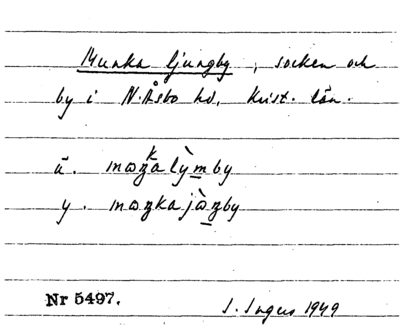 Munka ljungby, socken och
by i N. Åsbo hd, Krist. län.
ä. mɷŋka lỳmby
y. mɷŋkajɷ̀ŋby
Nr 5497.
I. Ingers 1949